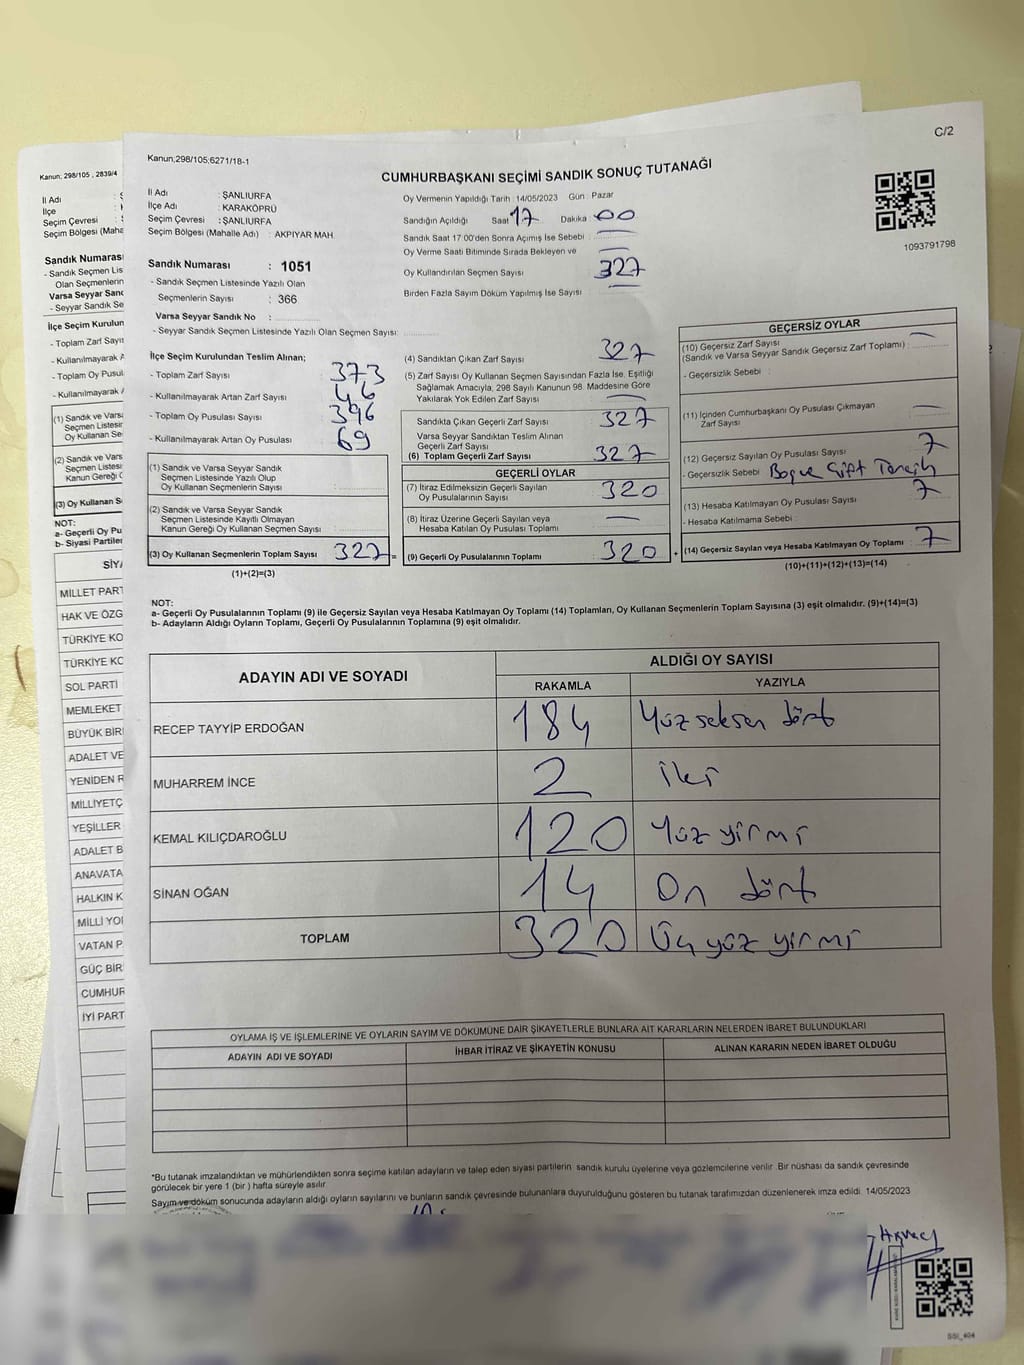 C/2
Kanun;298/105;6271/18-1
CUMHURBAŞKANI SEÇİMİ SANDIK SONUÇ TUTANAĞI
İl Adı : ŞANLIURFA
İlçe Adı : KARAKÖPRÜ
Seçim Çevresi : ŞANLIURFA
Seçim Bölgesi (Mahalle Adı) : AKPIYAR MAH.
Sandık Numarası : 1051
- Sandık Seçmen Listesinde Yazılı Olan
Seçmenlerin Sayısı : 366
Varsa Seyyar Sandık No :
- Seyyar Sandık Seçmen Listesinde Yazılı Olan Seçmen Sayısı:
Oy Vermenin Yapıldığı Tarih : 14/05/2023 Gün : Pazar
Sandığın Açıldığı Saat 17 Dakika 00
Sandık Saat 17:00'den Sonra Açımış Ise Sebebi
Oy Verme Saati Bitiminde Sırada Bekleyen ve
Oy Kullandırılan Seçmen Sayısı 327
Birden Fazla Sayım Döküm Yapılmış Ise Sayısı
1093791798
İlçe Seçim Kurulundan Teslim Alınan;
- Toplam Zarf Sayısı 373
- Kullanılmayarak Artan Zarf Sayısı 46
- Toplam Oy Pusulası Sayısı 396
- Kullanılmayarak Artan Oy Pusulası 69
(1) Sandık ve Varsa Seyyar Sandık
Seçmen Listesinde Yazılı Olup
Oy Kullanan Seçmenlerin Sayısı :
(2) Sandık ve Varsa Seyyar Sandık
Seçmen Listesinde Kayıtlı Olmayan
Kanun Gereği Oy Kullanan Seçmen Sayısı
(3) Oy Kullanan Seçmenlerin Toplam Sayısı 327 =
(1)+(2)=(3)
(4) Sandıktan Çıkan Zarf Sayısı 327
(5) Zarf Sayısı Oy Kullanan Seçmen Sayısından Fazla Ise, Eşitliği
Sağlamak Amacıyla, 298 Sayılı Kanunun 98. Maddesine Göre
Yakılarak Yok Edilen Zarf Sayısı
Sandıkta Çıkan Geçerli Zarf Sayısı 327
Varsa Seyyar Sandıktan Teslim Alınan
Geçerli Zarf Sayısı
(6) Toplam Geçerli Zarf Sayısı 327
GEÇERLİ OYLAR
(7) İtiraz Edilmeksizin Geçerli Sayılan
Oy Pusulalarının Sayısı 320
(8) İtiraz Üzerine Geçerli Sayılan veya
Hesaba Katılan Oy Pusulası Toplamı
(9) Geçerli Oy Pusulalarının Toplamı 320 +
GEÇERSİZ OYLAR
(10) Geçersiz Zarf Sayısı
(Sandık ve Varsa Seyyar Sandık Geçersiz Zarf Toplamı) :
- Geçersizlik Sebebi :
(11) İçinden Cumhurbaşkanı Oy Pusulası Çıkmayan
Zarf Sayısı
(12) Geçersiz Sayılan Oy Pusulası Sayısı 7
- Geçersizlik Sebebi Çift Tercih
(13) Hesaba Katılmayan Oy Pusulası Sayısı 7
- Hesaba Katılmama Sebebi
(14) Geçersiz Sayılan veya Hesaba Katılmayan Oy Toplamı 7
(10)+(11)+(12)+(13)=(14)
NOT:
a- Geçerli Oy Pusulalarının Toplamı (9) ile Geçersiz Sayılan veya Hesaba Katılmayan Oy Toplamı (14) Toplamları, Oy Kullanan Seçmenlerin Toplam Sayısına (3) eşit olmalıdır. (9)+(14)=(3)
b- Adayların Aldığı Oyların Toplamı, Geçerli Oy Pusulalarının Toplamına (9) eşit olmalıdır.
ADAYIN ADI VE SOYADI ALDIĞI OY SAYISI
RAKAMLA YAZIYLA
RECEP TAYYİP ERDOĞAN 184 Yüz seksen dört
MUHARREM İNCE 2 iki
KEMAL KILIÇDAROĞLU 120 Yüz yirmi
SİNAN OĞAN 14 On dört
TOPLAM 320 Üç yüz yirmi
OYLAMA İŞ VE İŞLEMLERİNE VE OYLARIN SAYIM VE DÖKÜMÜNE DAİR ŞİKAYETLERLE BUNLARA AİT KARARLARIN NELERDEN İBARET BULUNDUKLARI
ADAYIN ADI VE SOYADI İHBAR İTİRAZ VE ŞİKAYETİN KONUSU ALINAN KARARIN NEDEN İBARET OLDUĞU
*Bu tutanak imzalandıktan ve mühürlendikten sonra seçime katılan adayların ve talep eden siyasi partilerin sandık kurulu üyelerine veya gözlemcilerine verilir. Bir nüshası da sandık çevresinde
görülecek bir yere 1 (bir ) hafta süreyle asılır
Sayım ve döküm sonucunda adayların aldığı oyların sayılarını ve bunların sandık çevresinde bulunanlara duyurulduğunu gösteren bu tutanak tarafımızdan düzenlenerek imza edildi 14/05/2023
Kanun; 298/105 , 2839/4
İl Adı
İlçe
Seçim Çevresi
Seçim Bölgesi (Maha
Sandık Numarası
- Sandık Seçmen Lis
Olan Seçmenlerin
Varsa Seyyar Sand
- Seyyar Sandık Se
İlçe Seçim Kurulun
- Toplam Zarf Sayı
- Kullanılmayarak A
- Toplam Oy Pusul
- Kullanılmayarak A
(1) Sandık ve Varsa
Seçmen Listesi
Oy Kullanan Se
(2) Sandık ve Vars
Seçmen Listesi
Kanun Gereği O
(3) Oy Kullanan S
NOT:
a- Geçerli Oy Pu
b- Siyasi Partiler
SİYA
MİLLET PART
HAK VE ÖZG
TÜRKİYE KO
TÜRKİYE KO
SOL PARTİ
MEMLEKET
BÜYÜK BİR
ADALET VE
YENİDEN R
MİLLİYETÇ
YEŞİLLER
ADALET B
ANAVATA
HALKIN K
MİLLİ YOL
VATAN P
GÜÇ BİR
CUMHUR
İYİ PART